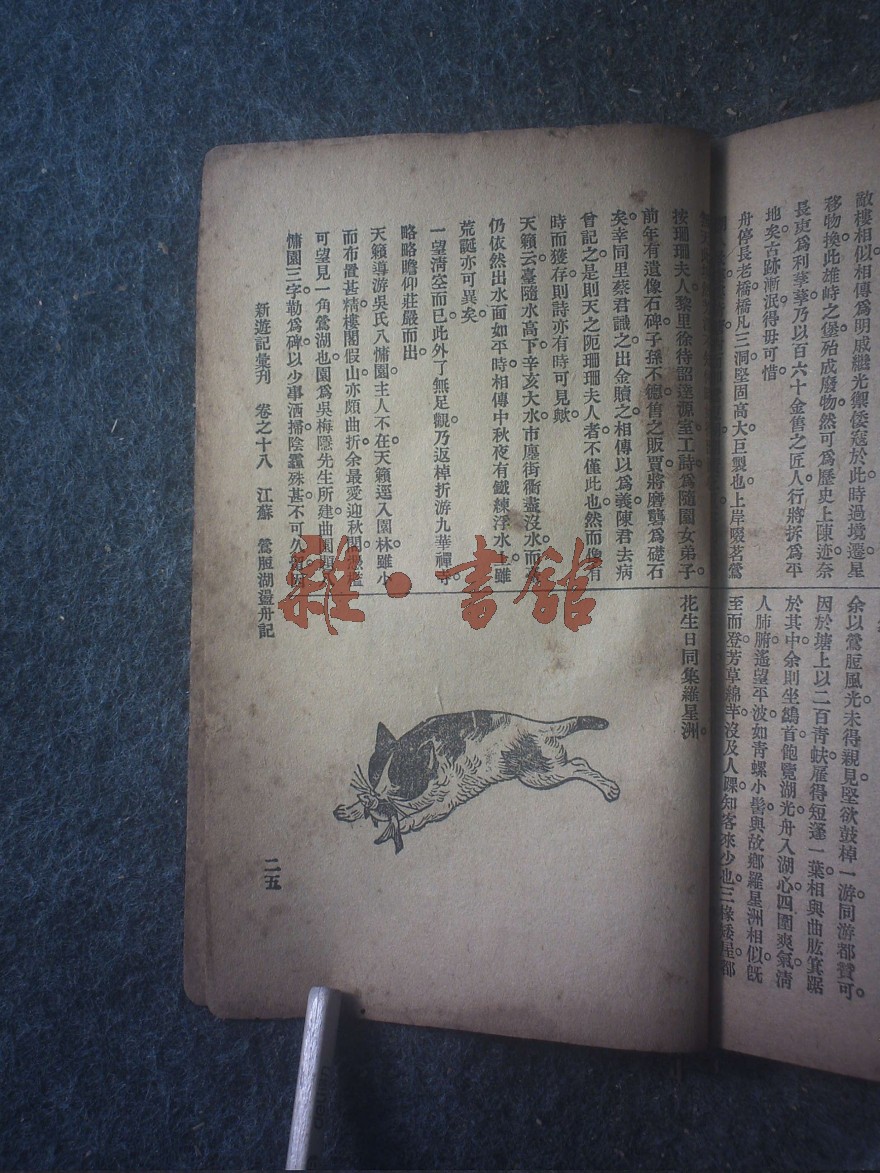 敵樓相似相傳爲明戚繼光禦倭寇於此時過境遷星
移物換此雄峙之堡殆成廢物然可爲歷史上陳迹奈
長吏爲利華華乃以百六十金售之匠人行將拆爲平
地矣古跡漸泯得毋可惜。
舟停長老橋橋凡三洞堅固高大巨製也上岸啜茗鶯
余以鶯脰風光未得親見堅欲鼓棹一游同游都贊可。
因於塘上以二百青蚨雇得短篷一葉相與曲肱箕踞
於其中余則坐鷁首飽覽湖光舟入湖心四圍爽氣清
人肺腑遙望平波如青螺小髻與故鄉羅星洲相似旣
至而登芳草綿芊沒及人踝知客來少也三椽矮屋都
按珊珊夫人黎里徐待詔達源室工詩爲隨園女弟子。
前年有遺像石碑子孫不德售之販賈將磨礱爲礎石
矣。幸同里蔡君識之出金贖之相傳以爲義陳君去病
曾記之是則天之阨珊珊夫人者不僅此也然而像有
時而獲存則詩亦有時可見歟
天籟云臺隨水高下辛亥大水市廛街衢盡沒水而
仍依然出水面如平時相傳中秋夜有鐵練浮水。雖
荒誕亦可異矣。
一望淸空而已此外了無足觀乃返棹折游九華禪寺。
略略瞻仰莊嚴而出。
天籟導游吳氏八慵園主人不在天籟逕入園林雖小
而布置甚精樓閣假山亦頗曲折余最愛迎秋閣
可望見一角鶯湖也園爲吳梅隱先生所建曲園題
慵園三字勒爲碑以少事洒掃陰霾殊甚不可久
花生日同集羅星洲。
新遊記彙刋 卷之十八 江蘇 鶯脰湖盪舟記
二五
雜·書館